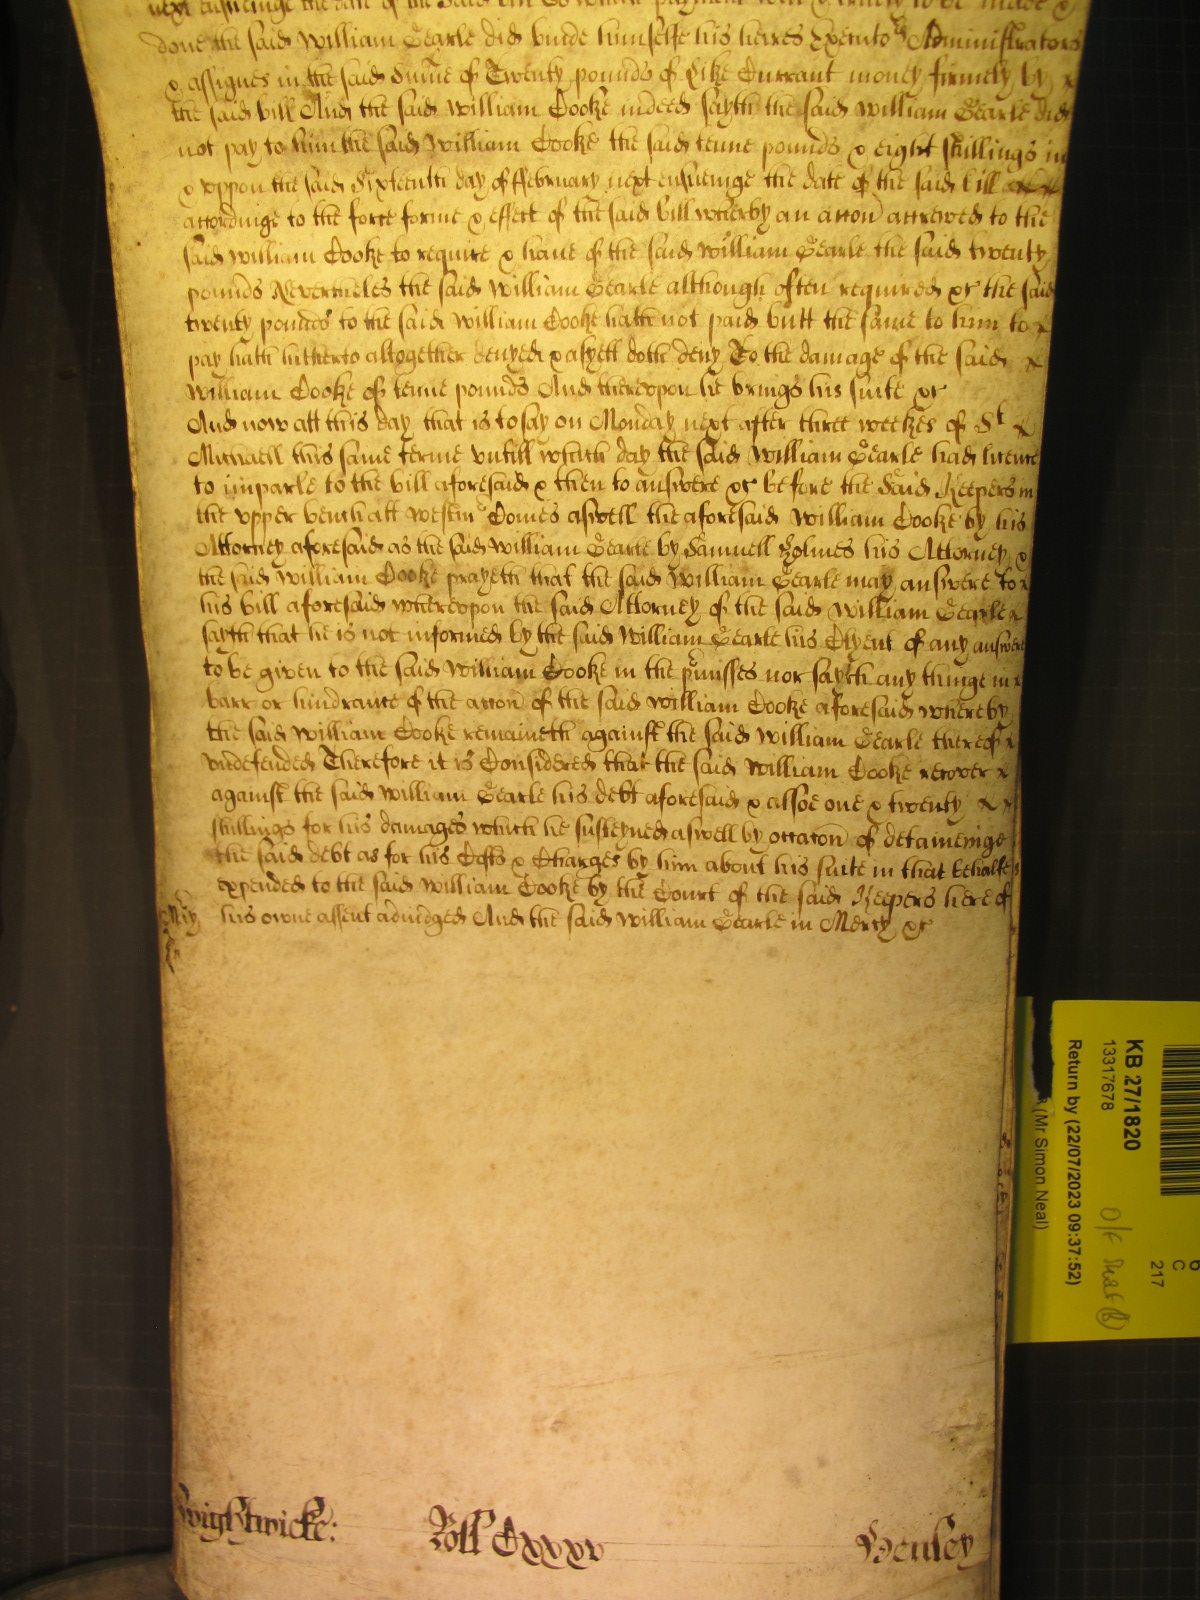 next ensueinge the date of the said bill To which payment well & truely to be made &
done the said William Searle did binde himselfe his heires Executors Administrators
& assignes in the said Summe of Twenty pounds of Like Currant money firmely by x
the said bill And the said William Cooke indeed sayth the said William Searle did
not pay to him the said William Cooke the said tenne pounds & eight shillings in
& uppon the said Sixteenth day of February next ensueinge the date of the said bill x x
accordinge to the force forme & effect of the said bill wherby an accon accrewed to the
said William Cooke to require & have of the said William Searle the said twenty
pounds Neverthelss the said William Searle although often required &c the said
twenty pounds to the said William Cooke hath not paid butt the same to him to x
pay hath hitherto altogether denyed & asyett doth deny To the damage of the said x
William Cooke of tenne pounds And thereupon he brings his suite &c
And now att this day that is to say on Monday next after three weekes of St x
Michaell this same terme untill which day the said William Searle had licence
to imparle to the bill aforesaid & then to answere &c before the said Keepers in
the upper bench att Westmr Comes aswell the aforesaid William Cooke by his
Attorney aforesaid as the said William Searle by Samuell Holmes his Attorney &
the said William Cooke prayeth that the said William Searle may answere to x
his bill aforesaid whereupon the said Attorney of the said William Searle x
sayth that he is not informed by the said William Searle his Clyent of any answere
to be given to the said William Cooke in the pmisses nor sayth any thinge in x
barr or hindrance of the accon of the said William Cooke aforesaid whereby
the said William Cooke remaineth against the said William Searle thereof x
undefended Therefore it is Considered that the said William Cooke recover x
against the said William Searle his debt aforesaid & allsoe one & twenty x x
shillings for his damages which he susteyned aswell by occacon of detaineinge
the said debt as for his Costs & Charges by him about his suite in that behalfe
expended to the said William Cooke by the Court of the said Keepers here of
Mcy his owne assent adiudged And the said William Searle in Mercy &c
Wightwicke: Roll Cxxxv Henley
KB 27/1820
13317678
Return by (22/07/2023 09:37:52)
(Mr Simon Neal)
O/F
6
C
217